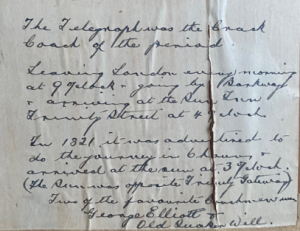 The Telegraph was the Crack
Coach of the period
Leaving London every morning
at 9 o'clock & going by Barkway
& arriving at the Sun Inn
Trinity Street at 4 o'clock.
In 1821 it was advertised to
do the journey in 6 hours &
arrived at the Sun at 3 o'clock.
(The Sun was opposite Trinity Gateway)
Two of the favourite Coachmen were
George Elliott &
Old Quaker Will.